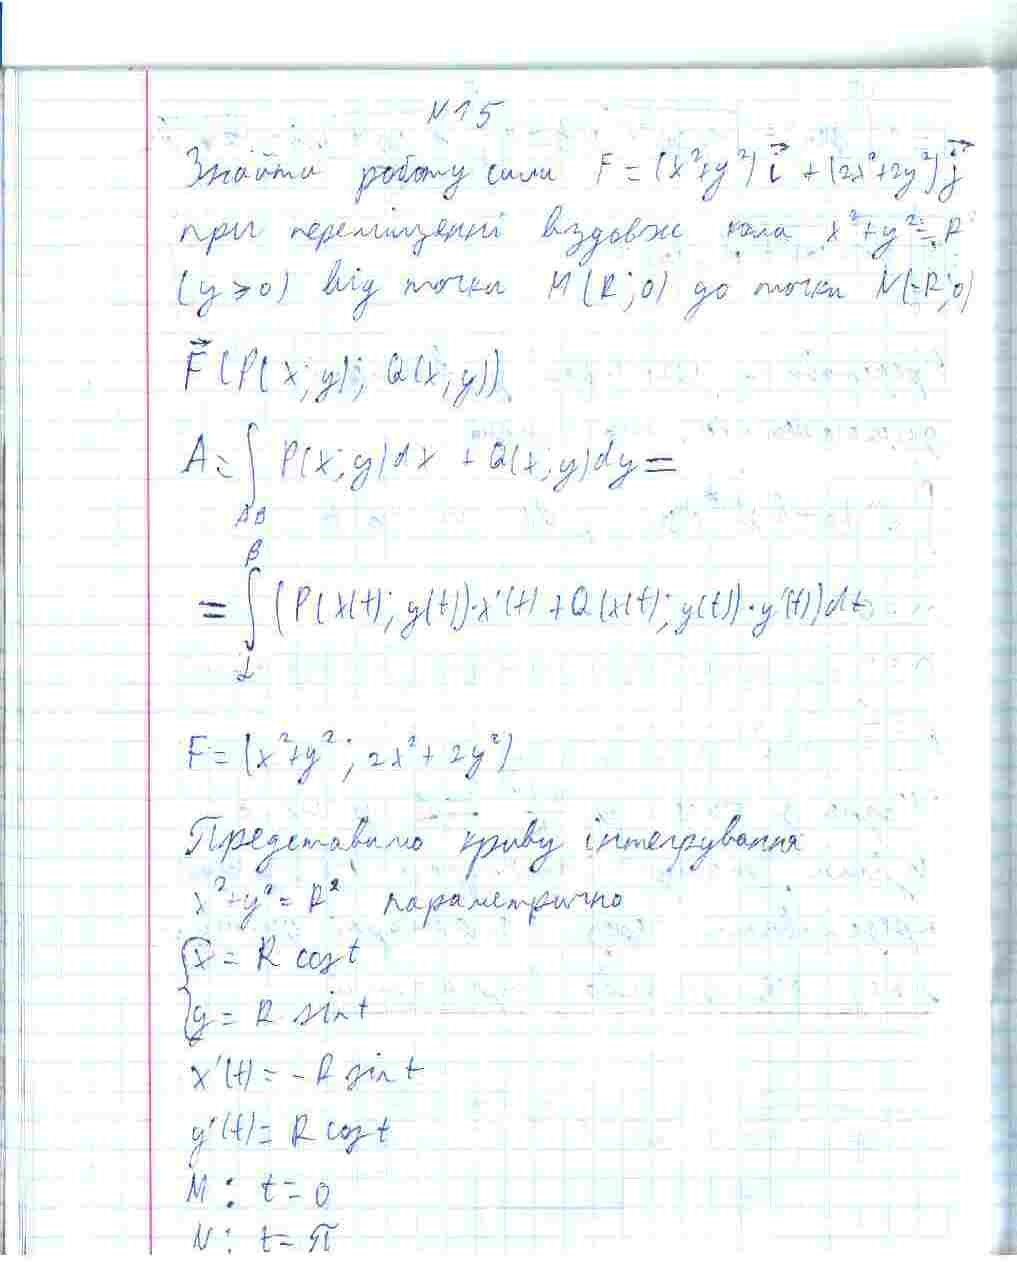 N 15
Знайти роботу сили F = (x²+y²) i⃗ + (2x²+2y²) j⃗
при переміщенні вздовж кола x²+y²=R
(y ≥ 0) від точки M(R; 0) до точки N(-R; 0)
F⃗ (P(x; y); Q(x; y))
A = ∫ P(x; y)dx + Q(x; y)dy =
AB
β
= ∫ (P(x(t); y(t))·x'(t) + Q(x(t); y(t))·y'(t))dt
α
F = (x²+y²; 2x²+2y²)
Представимо криву інтегрування
x²+y² = R² параметрично
{x = R cos t
y = R sin t
x'(t) = -R sin t
y'(t) = R cos t
M : t = 0
N : t = π